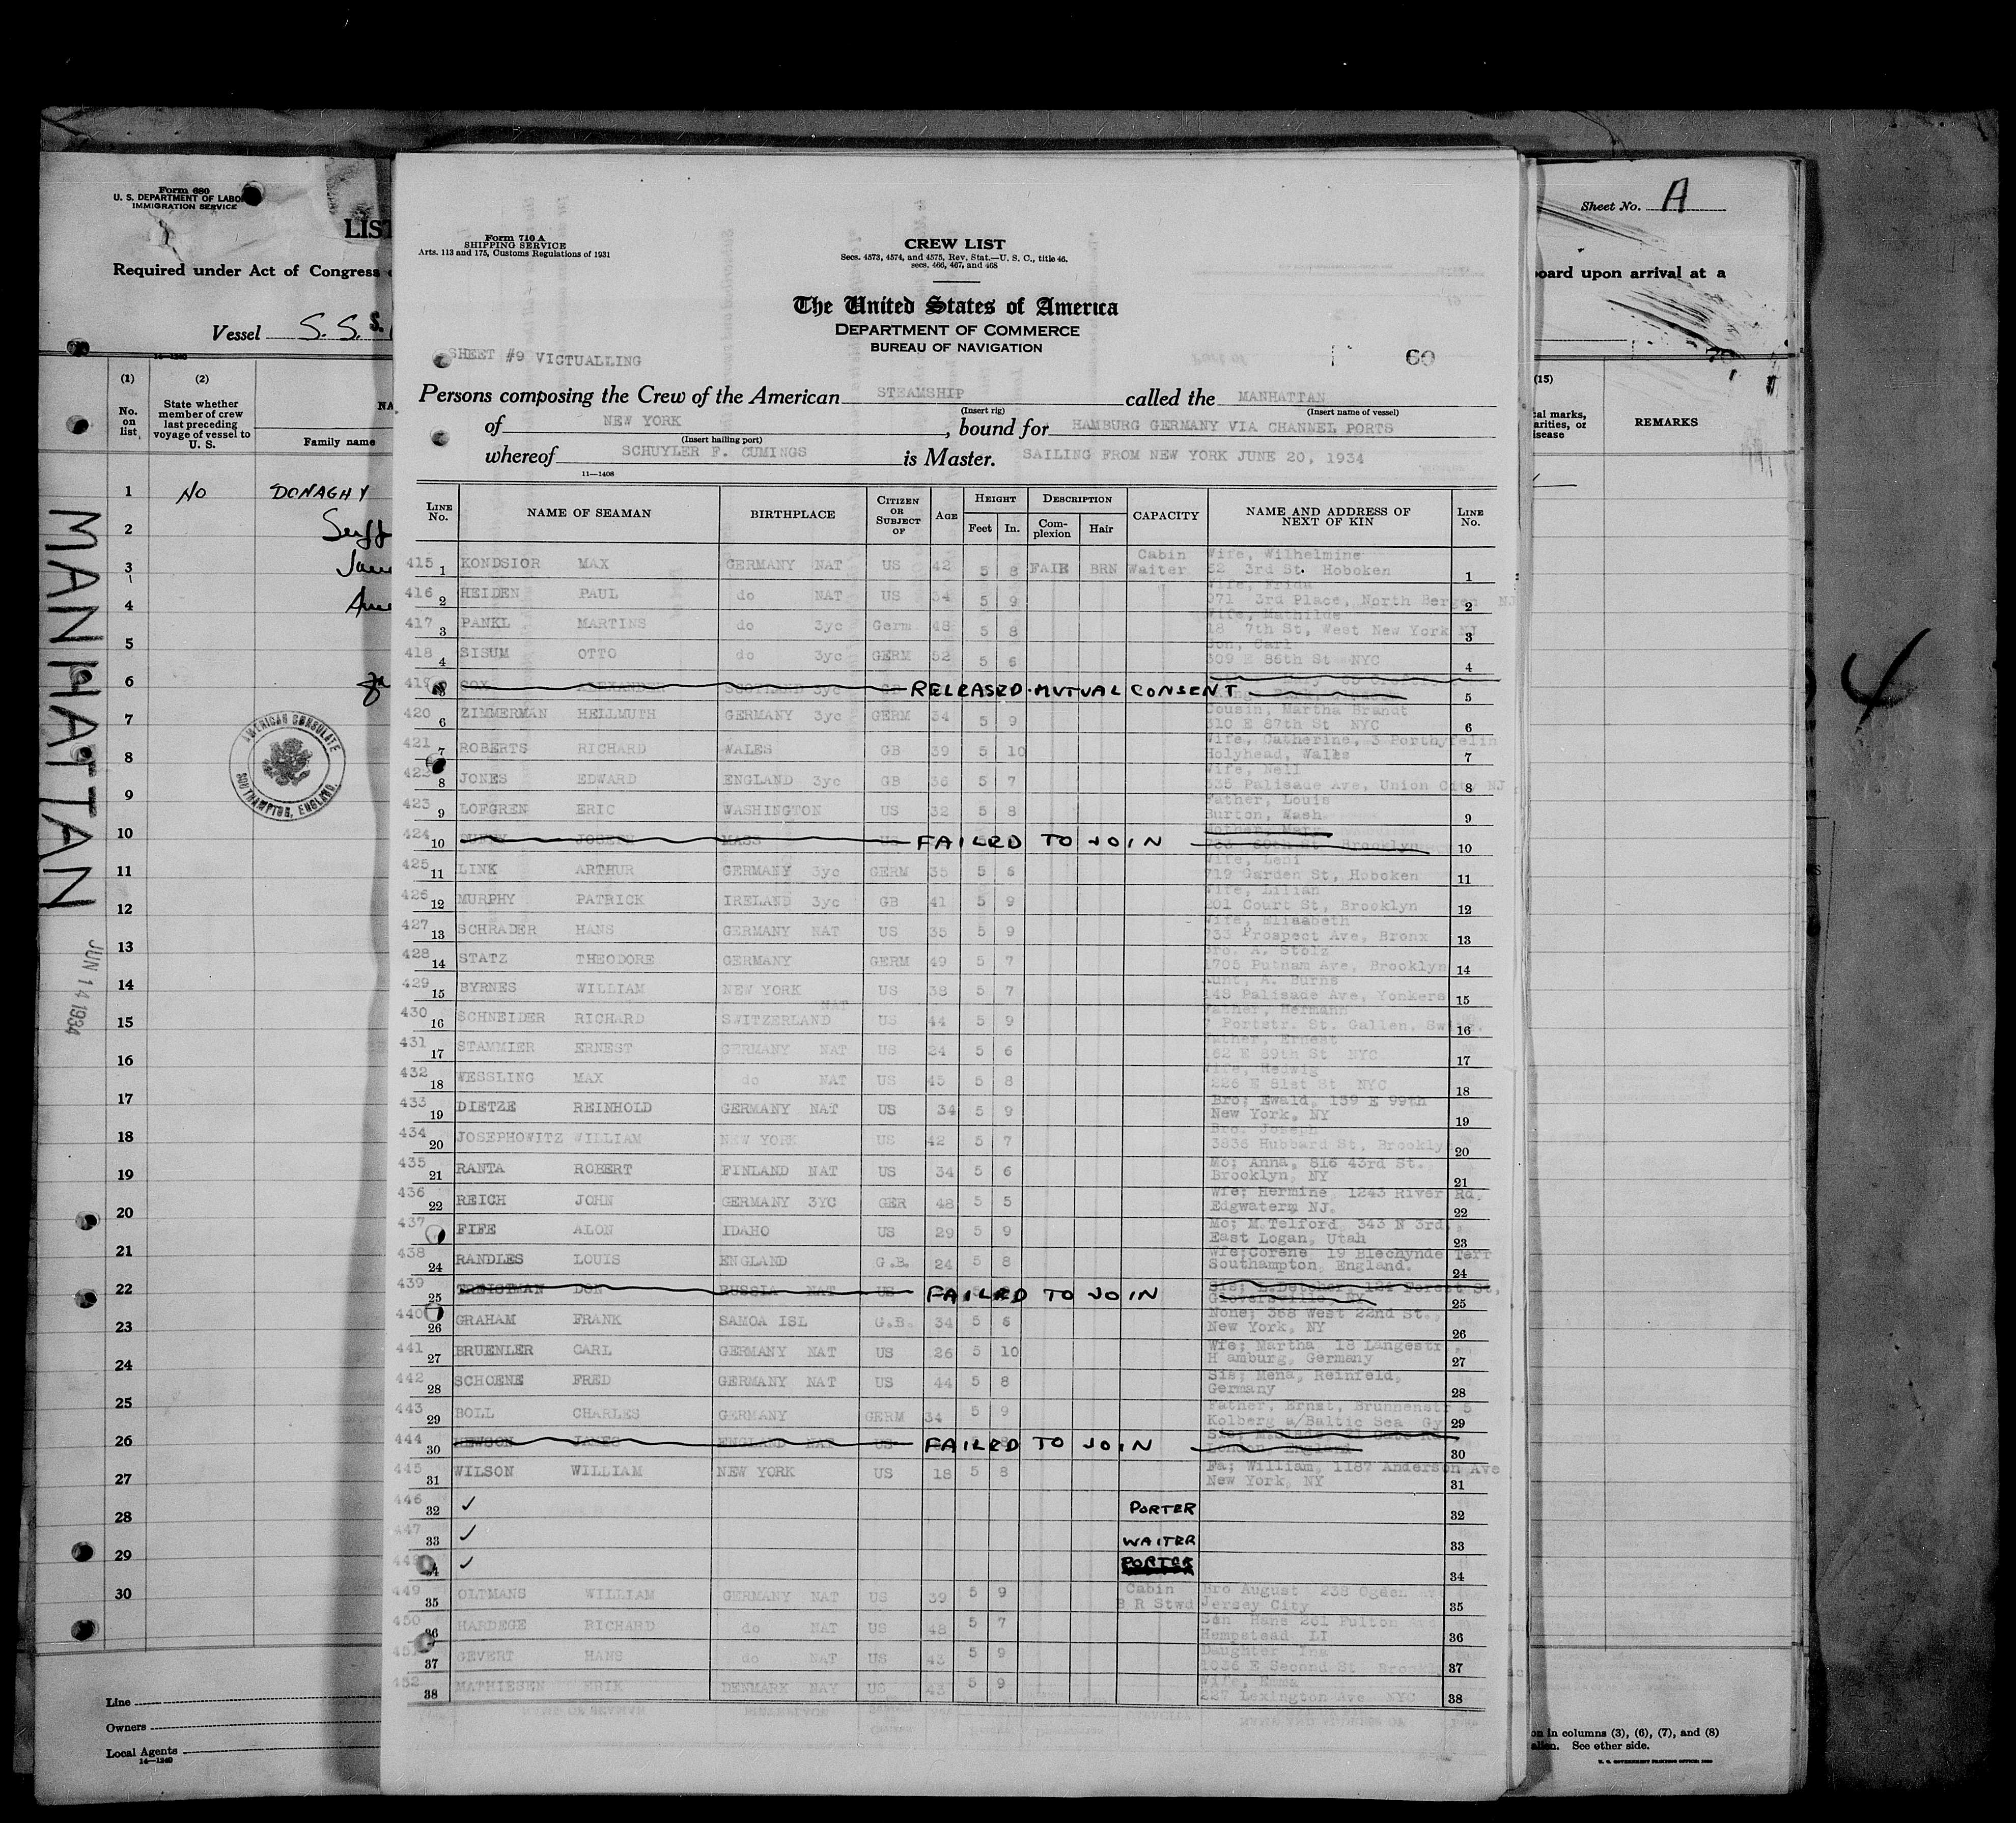 Form 680
U. S. DEPARTMENT OF LABO
IMMIGRATION SERVICE
LIST
Required under Act of Congress
Vessel S. S. S.
14—1240
(1)
No. on list
(2)
State whether member of crew last preceding voyage of vessel to U. S.
NA
Family name
1 NO DONAGHY
2
3
4
5
6
7
8
9
10
11
12
13
14
15
16
17
18
19
20
21
22
23
24
25
26
27
28
29
30
Line
Owners
Local Agents
14—1240
MANHATTAN
JUN 14 1934
AMERICAN CONSULATE
SOUTHAMPTON, ENGLAND.
Form 710 A
SHIPPING SERVICE
Arts. 113 and 175, Customs Regulations of 1931
CREW LIST
Secs. 4573, 4574, and 4575, Rev. Stat.—U. S. C., title 46, secs. 466, 467, and 468
The United States of America
DEPARTMENT OF COMMERCE
BUREAU OF NAVIGATION
SHEET #9 VICTUALLING
60
Persons composing the Crew of the American STEAMSHIP called the MANHATTAN
(Insert rig) (Insert name of vessel)
of NEW YORK, bound for HAMBURG GERMANY VIA CHANNEL PORTS
(Insert hailing port)
whereof SCHUYLER F. CUMINGS is Master. SAILING FROM NEW YORK JUNE 20, 1934
11—1408
LINE No. NAME OF SEAMAN BIRTHPLACE CITIZEN OR SUBJECT OF AGE HEIGHT Feet In. DESCRIPTION Complexion Hair CAPACITY NAME AND ADDRESS OF NEXT OF KIN LINE No.
415 1 KONDSIOR MAX GERMANY NAT US 42 5 8 FAIR BRN Cabin Waiter Wife, Wilhelmine 52 3rd St. Hoboken 1
416 2 HEIDEN PAUL do NAT US 34 5 9 Wife, Frida 971 3rd Place, North Bergen NJ 2
417 3 PANKL MARTINS do 3yc Germ 48 5 8 Wife, Mathilde 18 7th St, West New York NJ 3
418 4 SISUM OTTO do 3yc GERM 52 5 6 Son, Carl 309 E 86th St NYC 4
419 5 COX ALEXANDER SCOTLAND 3yc GB RELEASED·MUTUAL CONSENT 5
420 6 ZIMMERMAN HELLMUTH GERMANY 3yc GERM 34 5 9 Cousin, Martha Brandt 310 E 87th St NYC 6
421 7 ROBERTS RICHARD WALES GB 39 5 10 Wife, Catherine, 3 Porthyfelin Holyhead, Wales 7
422 8 JONES EDWARD ENGLAND 3yc GB 36 5 7 Wife, Nell 535 Palisade Ave, Union City NJ 8
423 9 LOFGREN ERIC WASHINGTON US 32 5 8 Father, Louis Burton, Wash 9
424 10 JOSEPH MASS US FAILED TO JOIN Mother, Mary 60th St Brooklyn 10
425 11 LINK ARTHUR GERMANY 3yc GERM 35 5 6 Wife, Leni 719 Garden St, Hoboken 11
426 12 MURPHY PATRICK IRELAND 3yc GB 41 5 9 Wife, Lilian 201 Court St, Brooklyn 12
427 13 SCHRADER HANS GERMANY NAT US 35 5 9 Wife, Elisabeth 733 Prospect Ave, Bronx 13
428 14 STATZ THEODORE GERMANY GERM 49 5 7 Bro. A. Stolz 1705 Putnam Ave, Brooklyn 14
429 15 BYRNES WILLIAM NEW YORK US 38 5 7 Aunt, A. Burns 148 Palisade Ave, Yonkers 15
430 16 SCHNEIDER RICHARD SWITZERLAND NAT US 44 5 9 Father, Hermann 7 Portstr. St. Gallen, Switz. 16
431 17 STAMMIER ERNEST GERMANY NAT US 24 5 6 Father, Ernest 162 E 89th St NYC 17
432 18 WESSLING MAX do NAT US 45 5 8 Wife, Hedwig 226 E 81st St NYC 18
433 19 DIETZE REINHOLD GERMANY NAT US 34 5 9 Bro; Ewald, 139 E 99th New York, NY 19
434 20 JOSEPHOWITZ WILLIAM NEW YORK US 42 5 7 Bro. Joseph 3836 Hubbard St, Brooklyn 20
435 21 RANTA ROBERT FINLAND NAT US 34 5 6 Mo; Anna, 816 43rd St. Brooklyn, NY 21
436 22 REICH JOHN GERMANY 3YC GER 48 5 5 Wfe; Hermine 1243 River Rd. Edgwaterm NJ. 22
437 23 FIFE ALON IDAHO US 29 5 9 Mo; M.Telford, 343 N 3rd East Logan, Utah 23
438 24 RANDLES LOUIS ENGLAND G.B. 24 5 8 Wfe;Corene 19 Blechynde Terr Southampton, England. 24
439 25 TREIGTMAN DON RUSSIA NAT US FAILED TO JOIN 124 Forest St, Gloversville, NY 25
440 26 GRAHAM FRANK SAMOA ISL G.B. 34 5 6 None; 368 West 22nd St., New York, NY 26
441 27 BRUENLER CARL GERMANY NAT US 26 5 10 Wfe; Martha 18 Langestr H amburg, Germany 27
442 28 SCHOENE FRED GERMANY NAT US 44 5 8 Sis; Mena, Reinfeld, Germany 28
443 29 BOLL CHARLES GERMANY GERM 34 5 9 Father, Ernst, Brunnenstr 5 Kolberg a/Baltic Sea Gy 29
444 30 HEWSON JAMES ENGLAND NAT US FAILED TO JOIN London England 30
445 31 WILSON WILLIAM NEW YORK US 18 5 8 Fa; William, 1187 Anderson Ave New York, NY 31
446 32 ✓ PORTER 32
447 33 ✓ WAITER 33
448 34 ✓ PORTER 34
449 35 OLTMANS WILLIAM GERMANY NAT US 39 5 9 Cabin B R Stwd Bro August 238 Ogden Ave Jersey City 35
450 36 HARDEGE RICHARD do NAT US 48 5 7 Son Hans 261 Fulton Ave Hempstead LI 36
451 37 GEVERT HANS do NAT US 43 5 9 Daughter Ina 1036 E Second St Brookl 37
452 38 MATHIESEN ERIK DENMARK NAT US 43 5 9 Wife, Emma 227 Lexington Ave NYC 38
Sheet No. A
board upon arrival at a
(15)
cal marks, arities, or isease
REMARKS
4
on in columns (3), (6), (7), and (8)
See other side.
U. S. GOVERNMENT PRINTING OFFICE